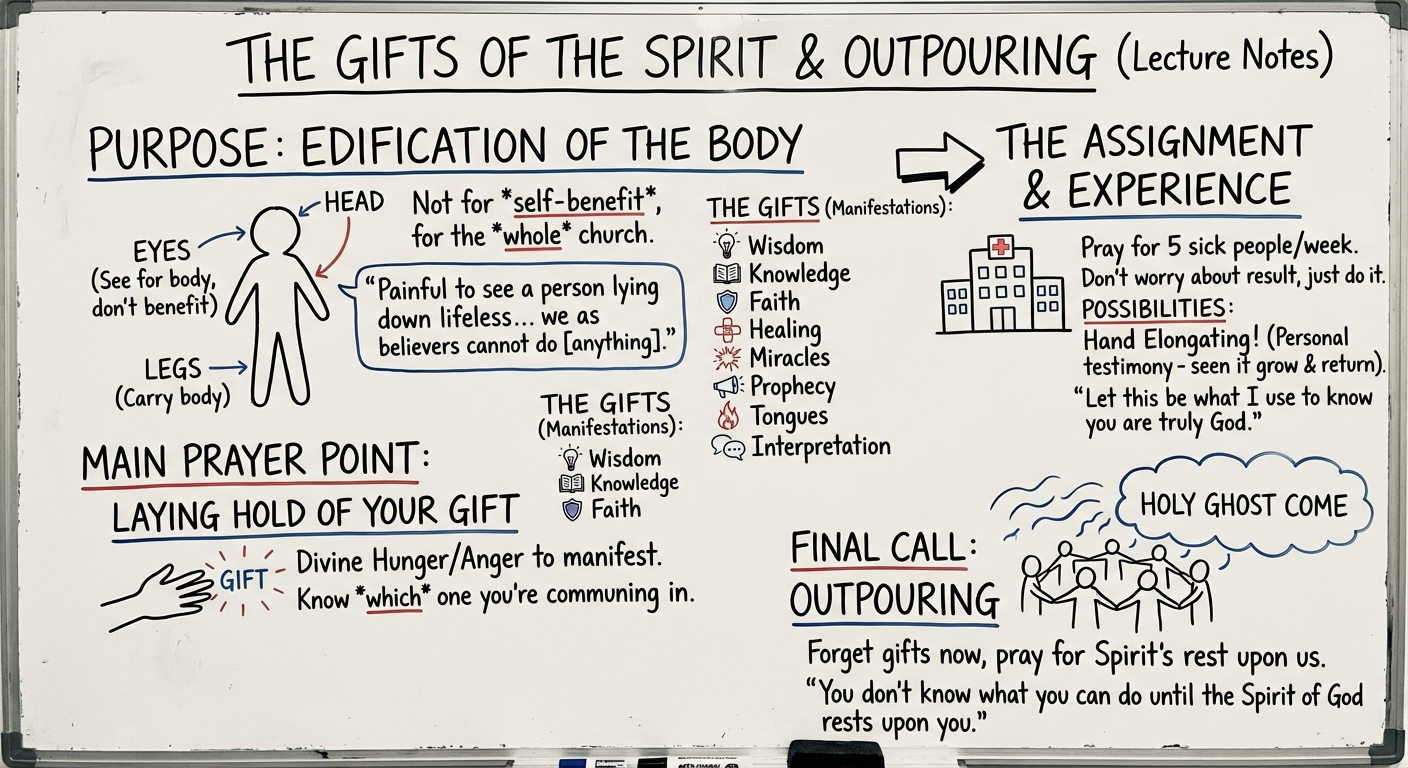 THE GIFTS OF THE SPIRIT & OUTPOURING (Lecture Notes)
PURPOSE: EDIFICATION OF THE BODY
HEAD
EYES
(See for body,
don't benefit)
LEGS
(Carry body)
Not for *self-benefit*,
for the *whole* church.
"Painful to see a person lying
down lifeless... we as
believers cannot do [anything]."
THE GIFTS
(Manifestations):
Wisdom
Knowledge
Faith
MAIN PRAYER POINT:
LAYING HOLD OF YOUR GIFT
GIFT
Divine Hunger/Anger to manifest.
Know *which* one you're communing in.
THE GIFTS (Manifestations):
Wisdom
Knowledge
Faith
Healing
Miracles
Prophecy
Tongues
Interpretation
THE ASSIGNMENT
& EXPERIENCE
Pray for 5 sick people/week.
Don't worry about result, just do it.
POSSIBILITIES:
Hand Elongating! (Personal
testimony - seen it grow & return).
"Let this be what I use to know
you are truly God."
HOLY GHOST COME
FINAL CALL:
OUTPOURING
Forget gifts now, pray for Spirit's rest upon us.
"You don't know what you can do until the Spirit of God
rests upon you."